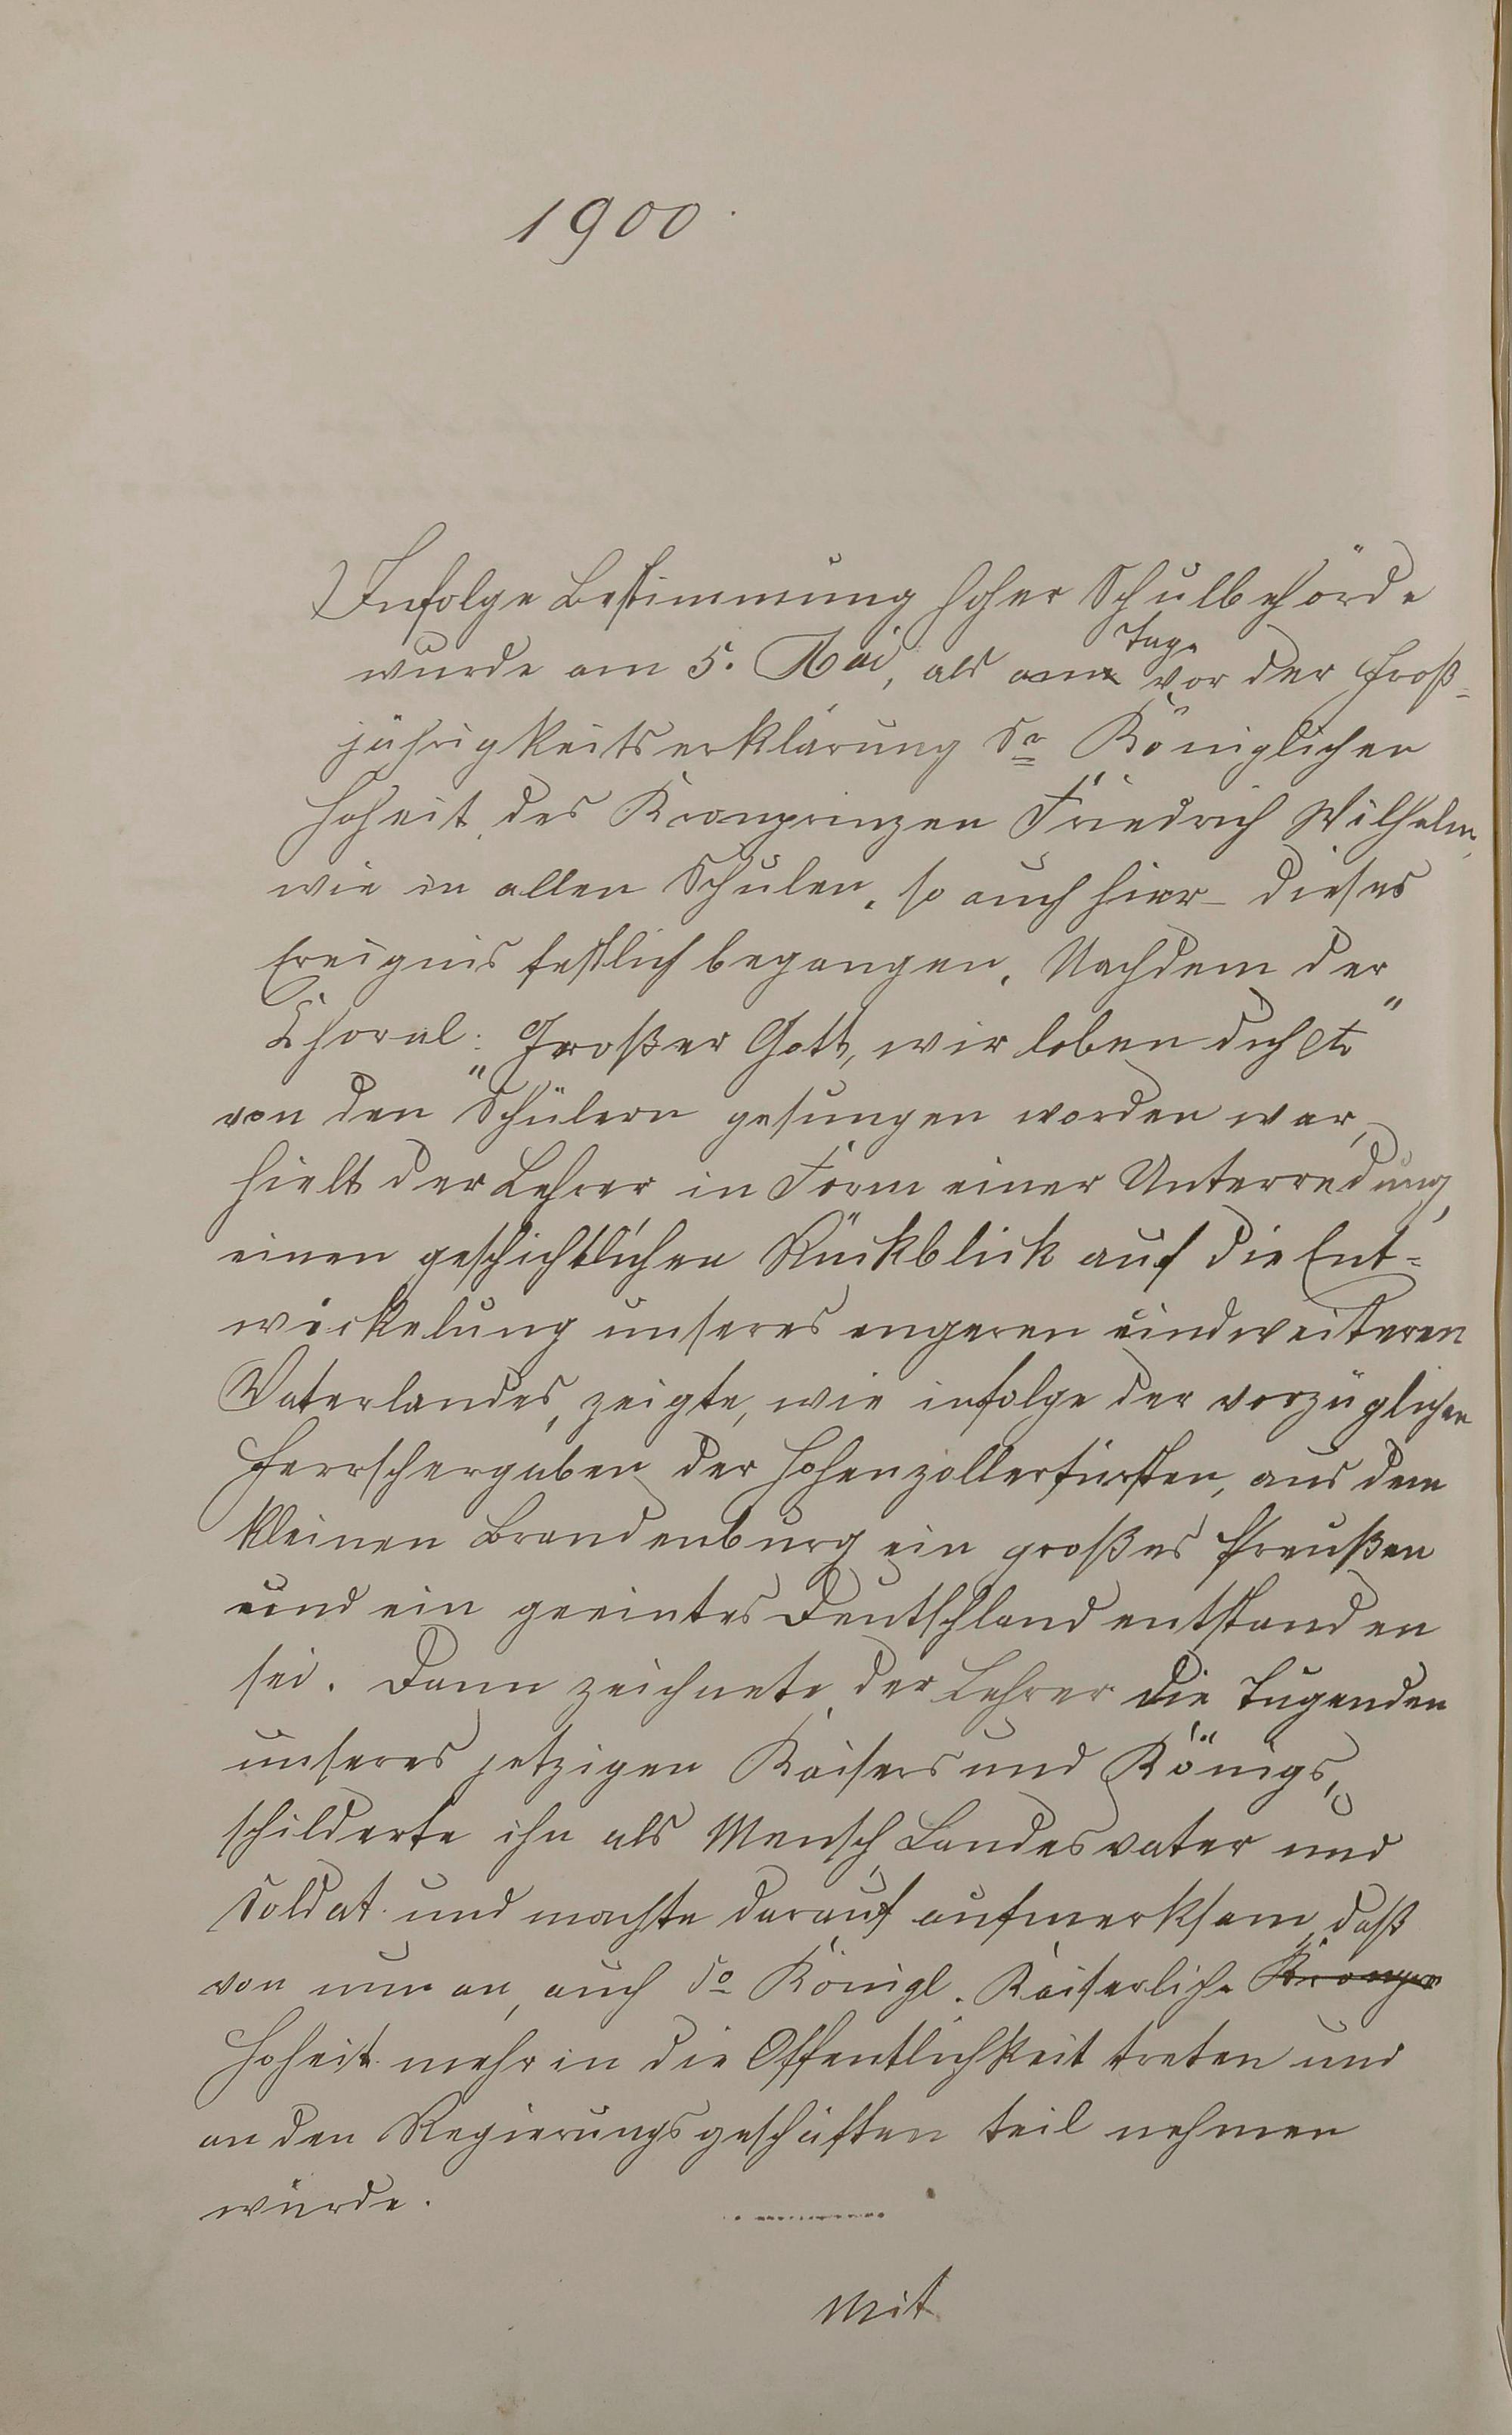 1900.
Infolge Bestimmung hoher Schulbehörde
wurde am 5. Mai, als am Tage vor der Groß-
jährigkeitserklärung Sr Königlichen
Hoheit des Kronprinzen Friedrich Wilhelm,
wie in allen Schulen, so auch hier dieses
Ereignis festlich begangen. Nachdem der
Choral: „Großer Gott, wir loben dich etc“
von den Schülern gesungen worden war,
hielt der Lehrer in Form einer Unterredung,
einen geschichtlichen Rückblick auf die Ent-
wickelung unseres engeren und weiteren
Vaterlandes, zeigte, wie infolge der vorzüglichen
Herrschergaben der Hohenzollerfürsten, aus dem
kleinen Brandenburg ein großes Preußen
und ein geeintes Deutschland entstanden
sei. Dann zeichnete der Lehrer die Tugenden
unseres jetzigen Kaisers und Königs,
schilderte ihn als Mensch, Landesvater und
Soldat und machte darauf aufmerksam, daß
von nun an, auch Se Königl. Kaiserliche Kronpr
Hoheit mehr in die Öffentlichkeit treten und
an den Regierungsgeschäften teil nehmen
würde.
Mit